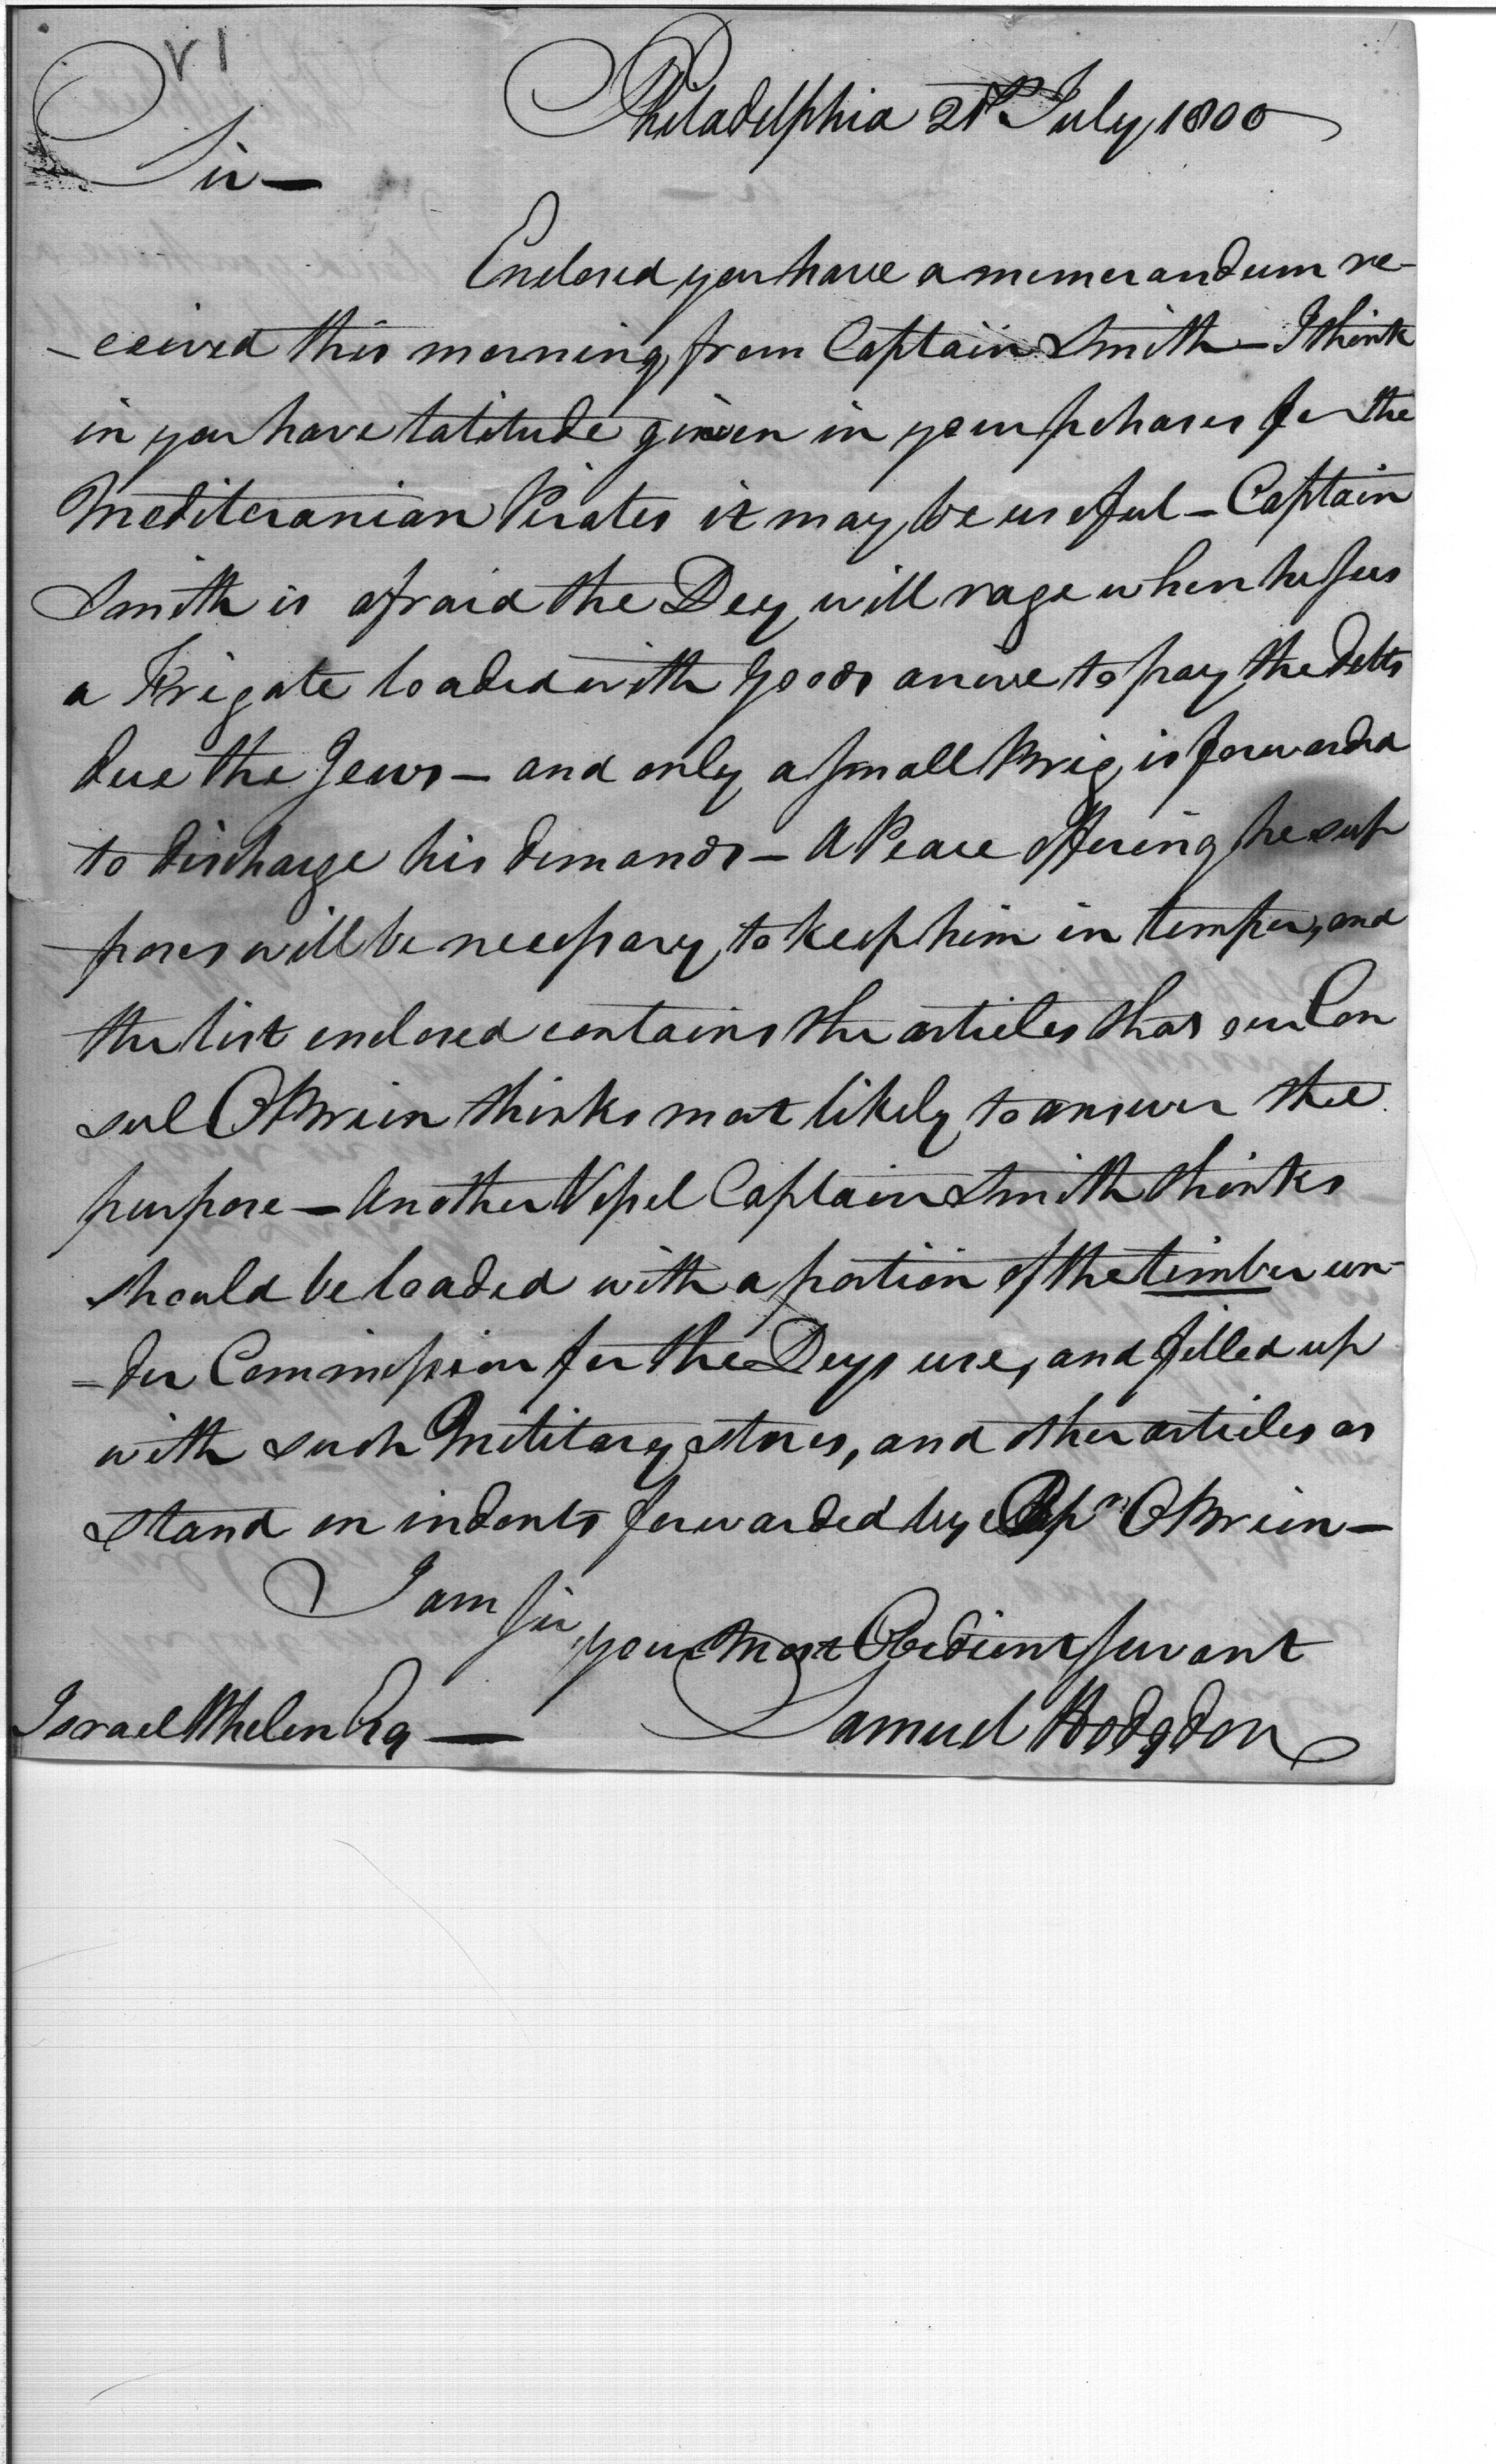 V1
Philadelphia 21st July, 1800
Sir —
Enclosed you have a memorandum re-
-ceived this morning, from Captain Smith — I think
in you have latitude given in your pchases for the
Mediteranian Pirates it may be useful — Captain
Smith is afraid the Dey will rage when he sees
a Frigate loaded with Goods arrive to pay the debts
due the Jews — and only a small Brig is forwarded
to discharge his demands — A Peace offering he sup
poses will be necessary to keep him in temper, and
the list enclosed contains the articles that our Con
sul OBrien thinks most likely to answer the
purpose — Another Vessel Captain Smith thinks
should be loaded with a portion of the timber un-
=der Commission for the Deys use, and filled up
with such Military stores, and other articles as
stand on indents forwarded by Capn OBrien —
I am Sir
your most Obedient servant
Samuel Hodgdon
Israel Whelen Esq —